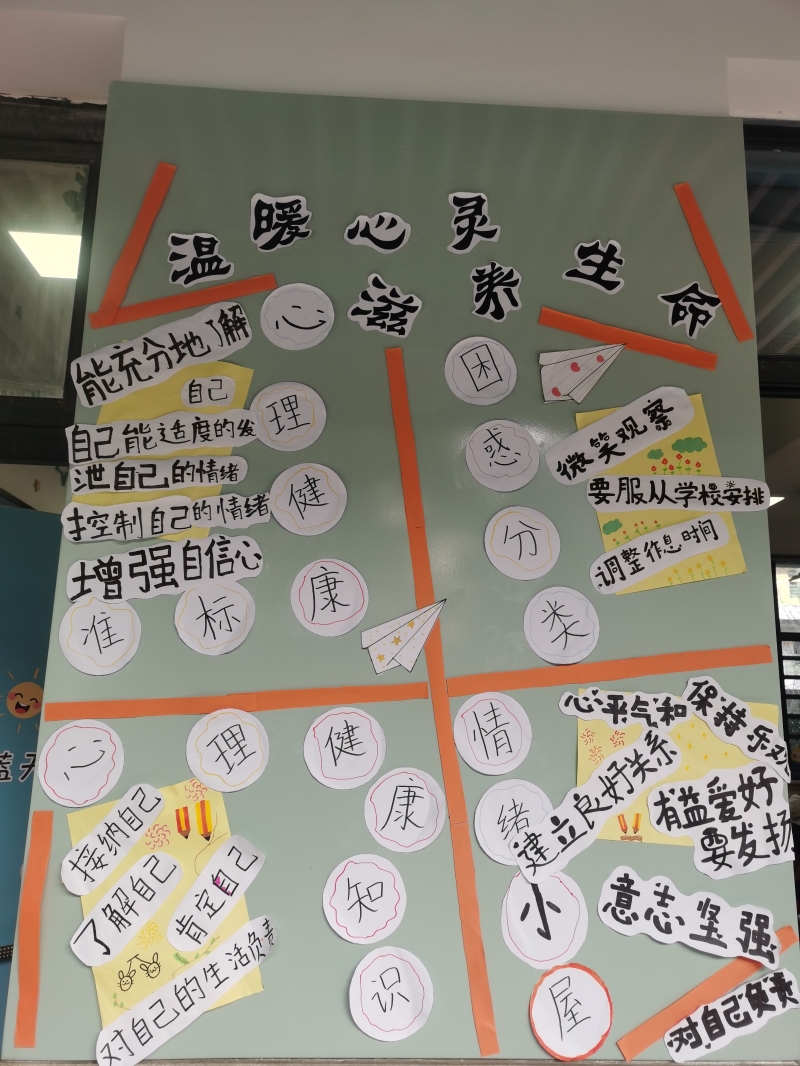 温暖心灵
滋养生命
心理健康
标准
能充分地了解
自己
自己能适度的发
泄自己的情绪
控制自己的情绪
增强自信心
困惑分类
微笑观察
要服从学校安排
调整作息时间
心理健康知识
接纳自己
了解自己
肯定自己
对自己的生活负责
情绪小屋
心平气和
保持乐观
建立良好关系
有益爱好
要发扬
意志坚强
对自己负责
蓝天